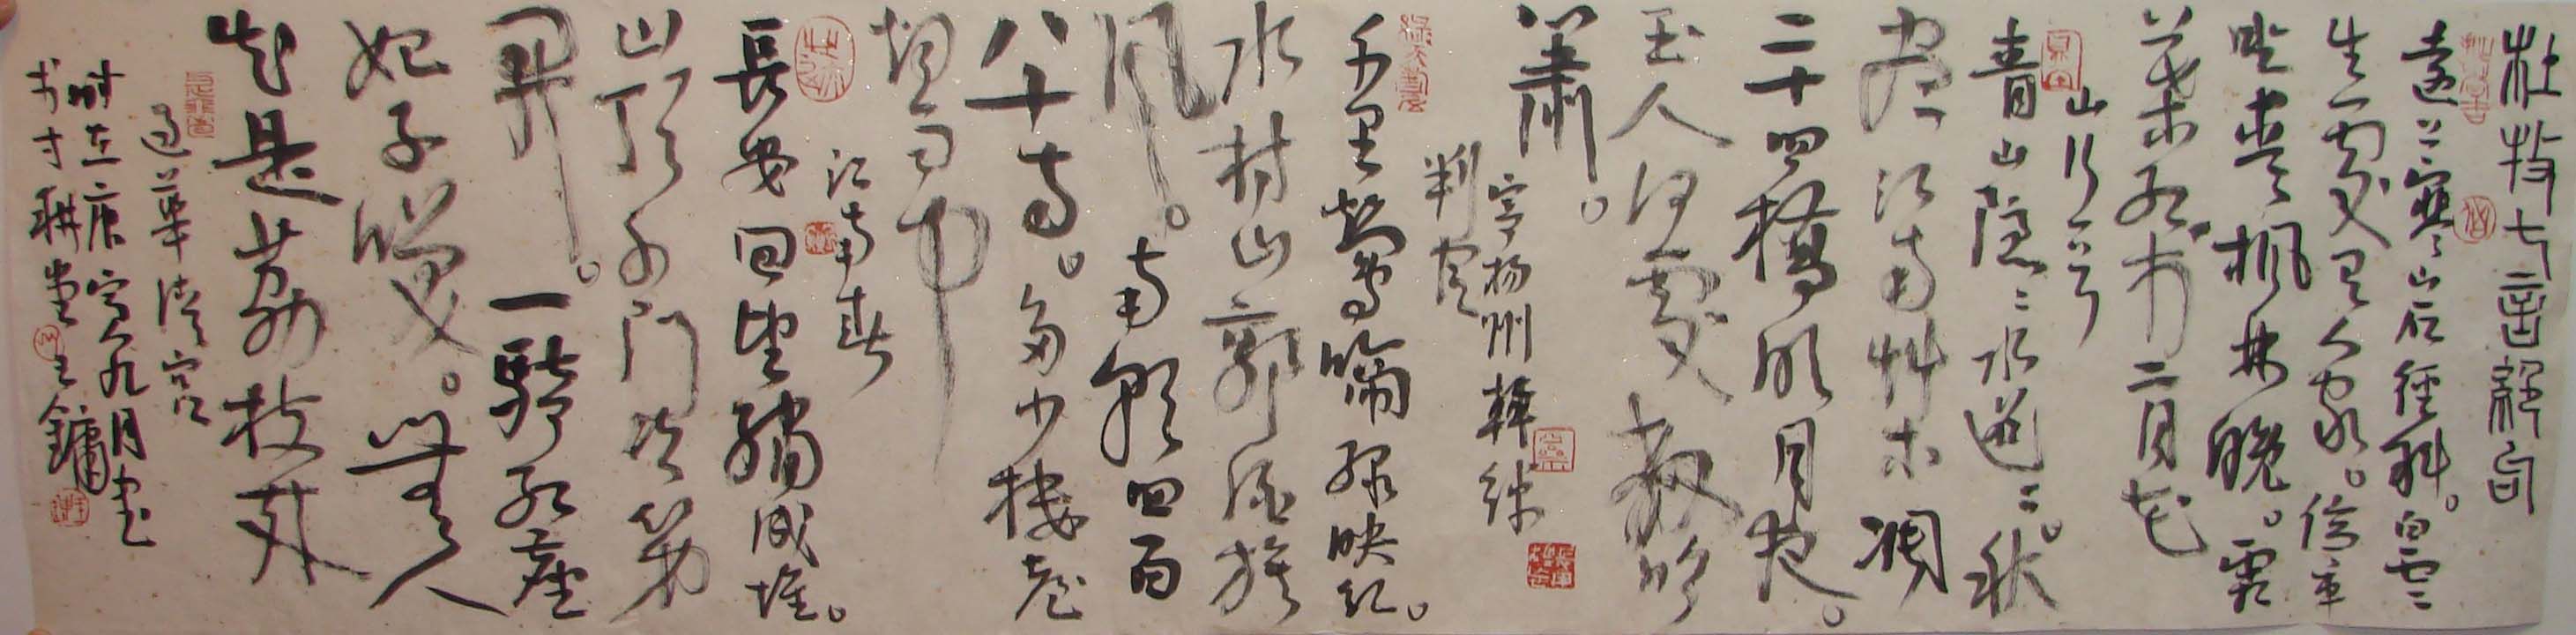 杜牧七言絕句
遠上寒山石徑斜。白雲
生處有人家。停車
坐愛楓林晚。霜
葉紅於二月花
山行
青山隱〻水迢〻。秋
盡江南艸木凋
二十四橋明月夜。
玉人何處教吹
簫。
寄揚州韓綽
判官
千里鶯啼綠映紅。
水村山郭酒旗
風。南朝四百
八十寺。多少樓臺
煙雨中
江南春
長安回望繡成堆。
山頂千門次第
開。一騎紅塵
妃子笑。無人
知是荔枝來
過華清宮
時在庚寅九月書
於寸耕堂王鏞